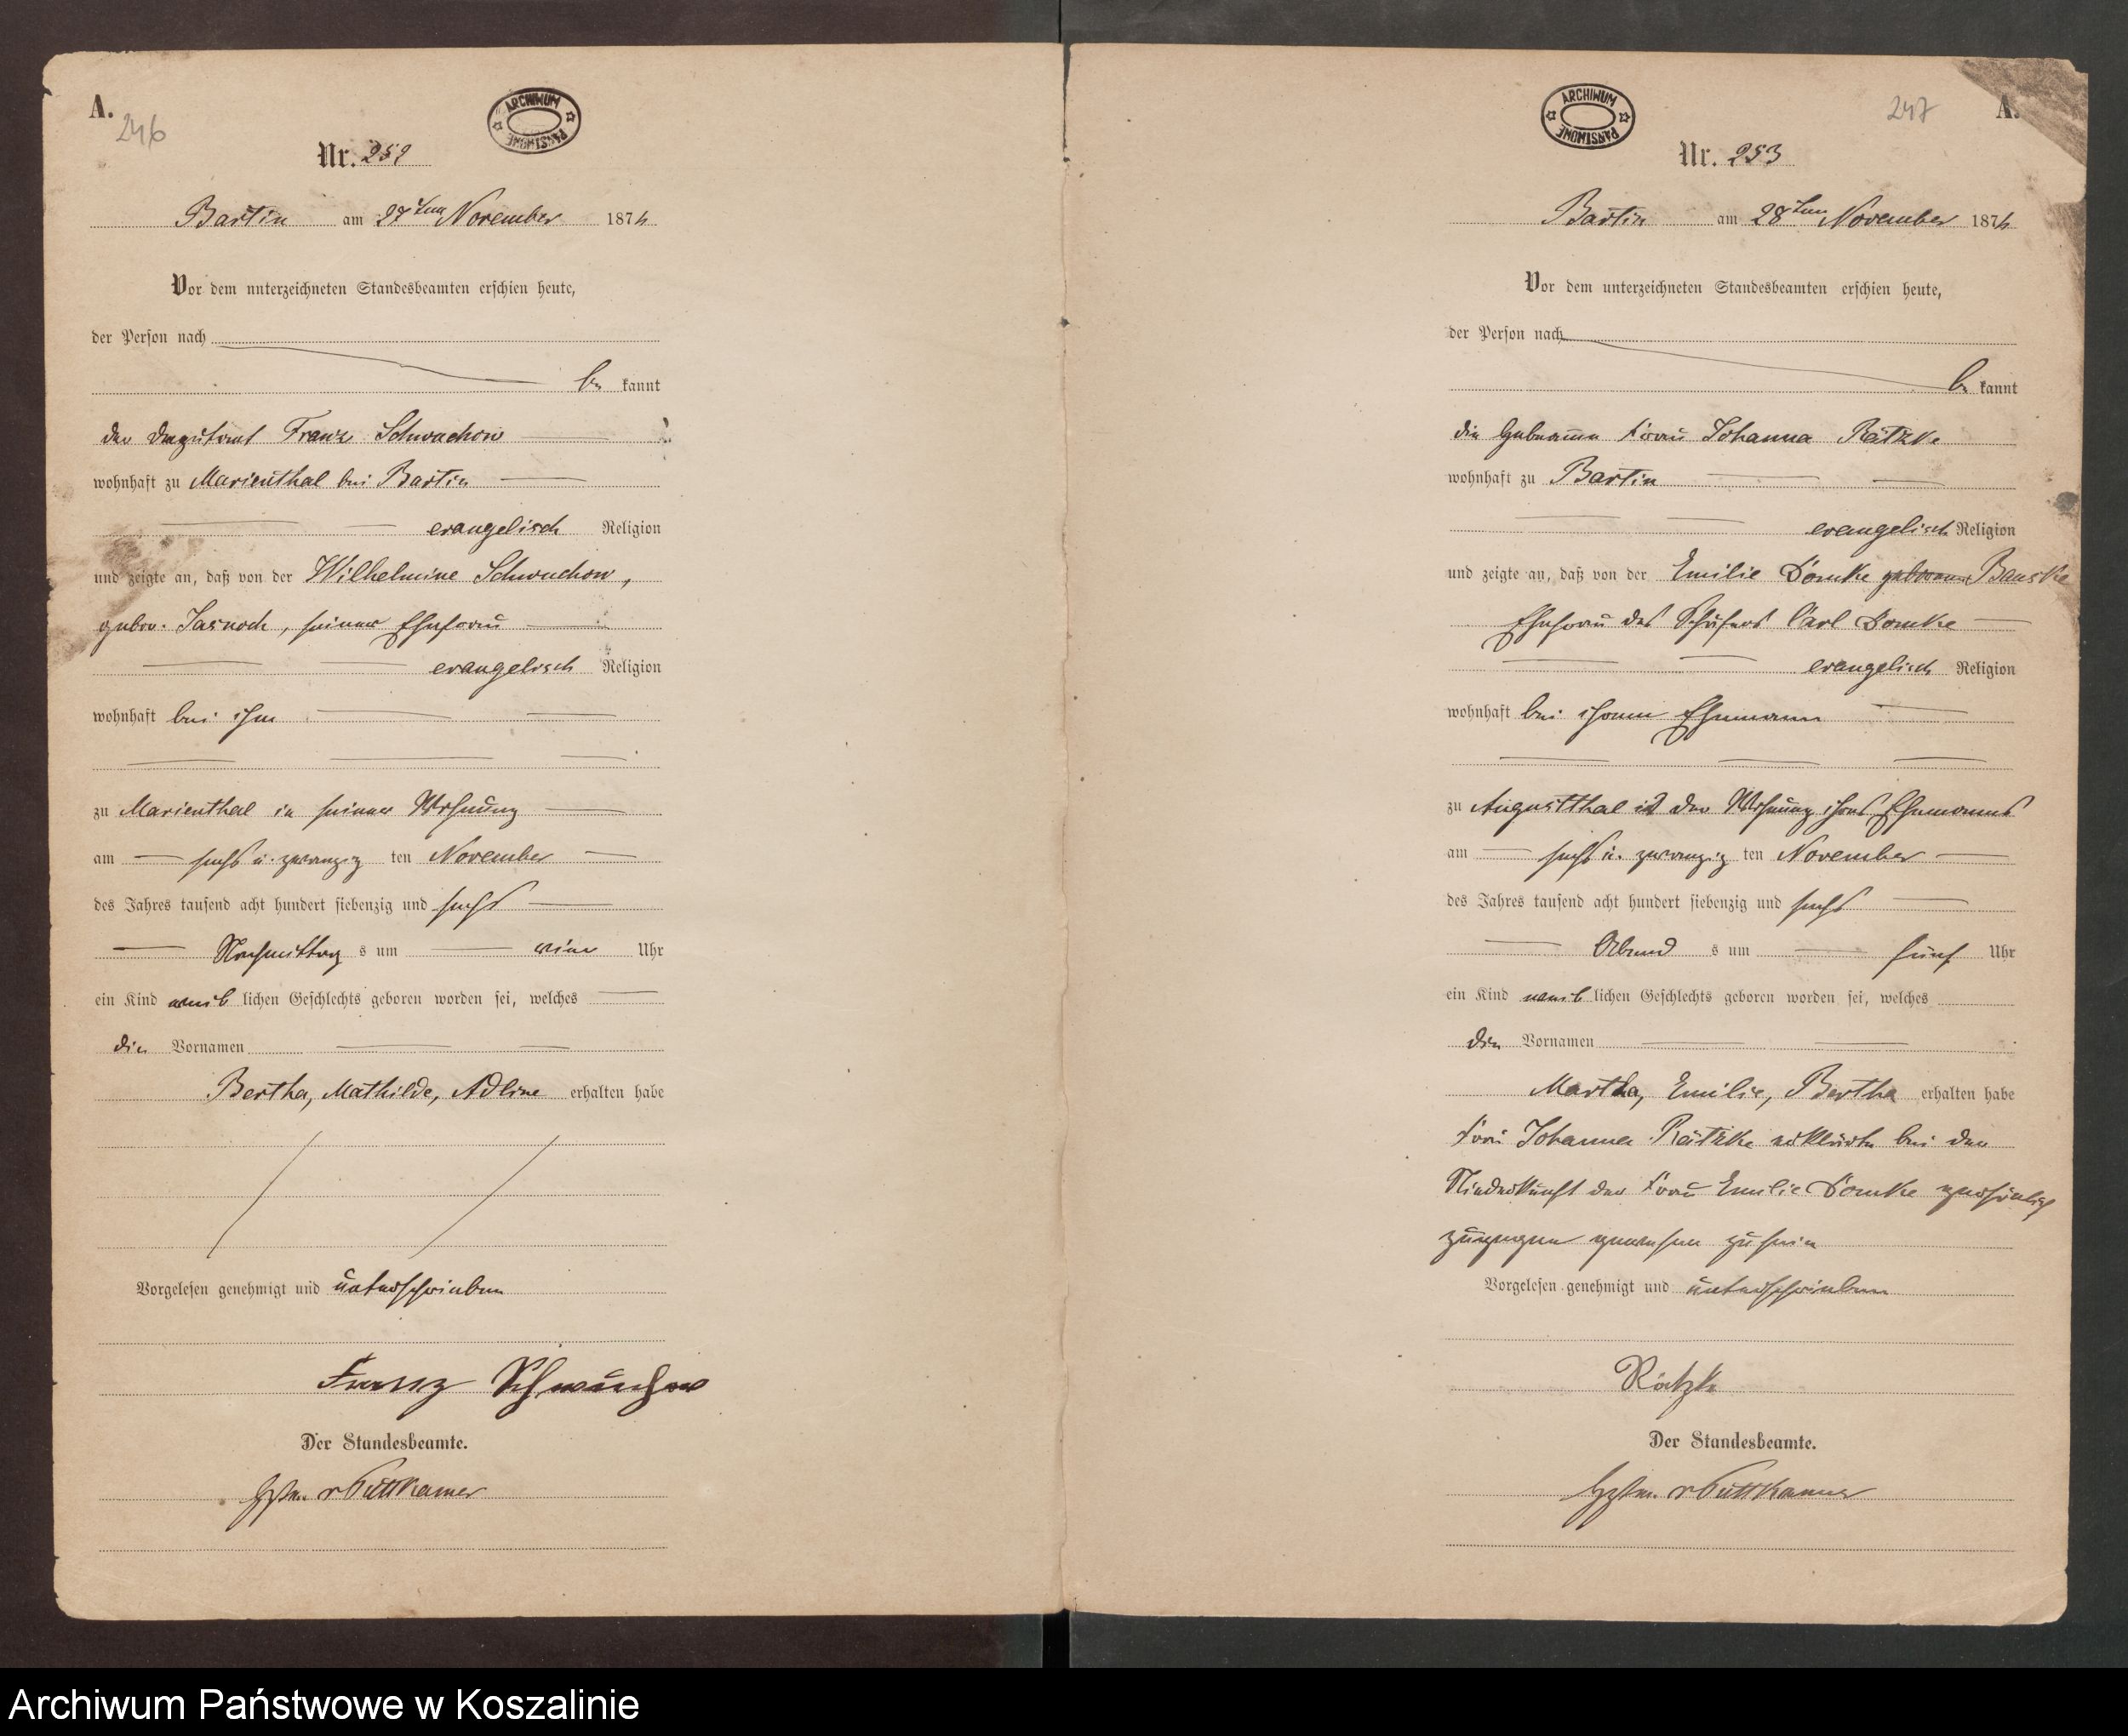 A.
246
ARCHIWUM PAŃSTWOWE
Nr. 252
Bartin am 27ten November 1876
Vor dem unterzeichneten Standesbeamten erschien heute,
der Person nach
be kannt
der Deputant Franz Schwuchow
wohnhaft zu Marienthal bei Bartin
evangelisch Religion
und zeigte an, daß von der Wilhelmine Schwuchow,
gebor. , seiner Ehefrau
evangelisch Religion
wohnhaft bei ihm
zu Marienthal in seiner Wohnung
am sechs u. zwanzig ten November
des Jahres tausend acht hundert siebenzig und sechs
Nachmittag s um eine Uhr
ein Kind weib lichen Geschlechts geboren worden sei, welches
die Vornamen
Bertha, Mathilde, Adline erhalten habe
Vorgelesen genehmigt und unterschrieben
Franz Schwuchow
Der Standesbeamte.
v Puttkamer
247
A.
ARCHIWUM PAŃSTWOWE
Nr. 253
Bartin am 28ten November 1876
Vor dem unterzeichneten Standesbeamten erschien heute,
der Person nach
be kannt
die Hebamme Frau Johanna Rätzke
wohnhaft zu Bartin
evangelisch Religion
und zeigte an, daß von der Emilie Domke geborene Banske
Ehefrau des Schäfers Carl Domke
evangelisch Religion
wohnhaft bei ihrem Ehemann
zu Augustthal in der Wohnung ihres Ehemanns
am sechs u. zwanzig ten November
des Jahres tausend acht hundert siebenzig und sechs
Abend s um fünf Uhr
ein Kind weib lichen Geschlechts geboren worden sei, welches
die Vornamen
Martha, Emilie, Bertha erhalten habe
Frau Johanna Rätzke erklärte bei der
Niederkunft der Frau Emilie Domke persönlich
zugegen gewesen zu sein
Vorgelesen genehmigt und unterschrieben
Rätzke
Der Standesbeamte.
v Puttkamer
Archiwum Państwowe w Koszalinie